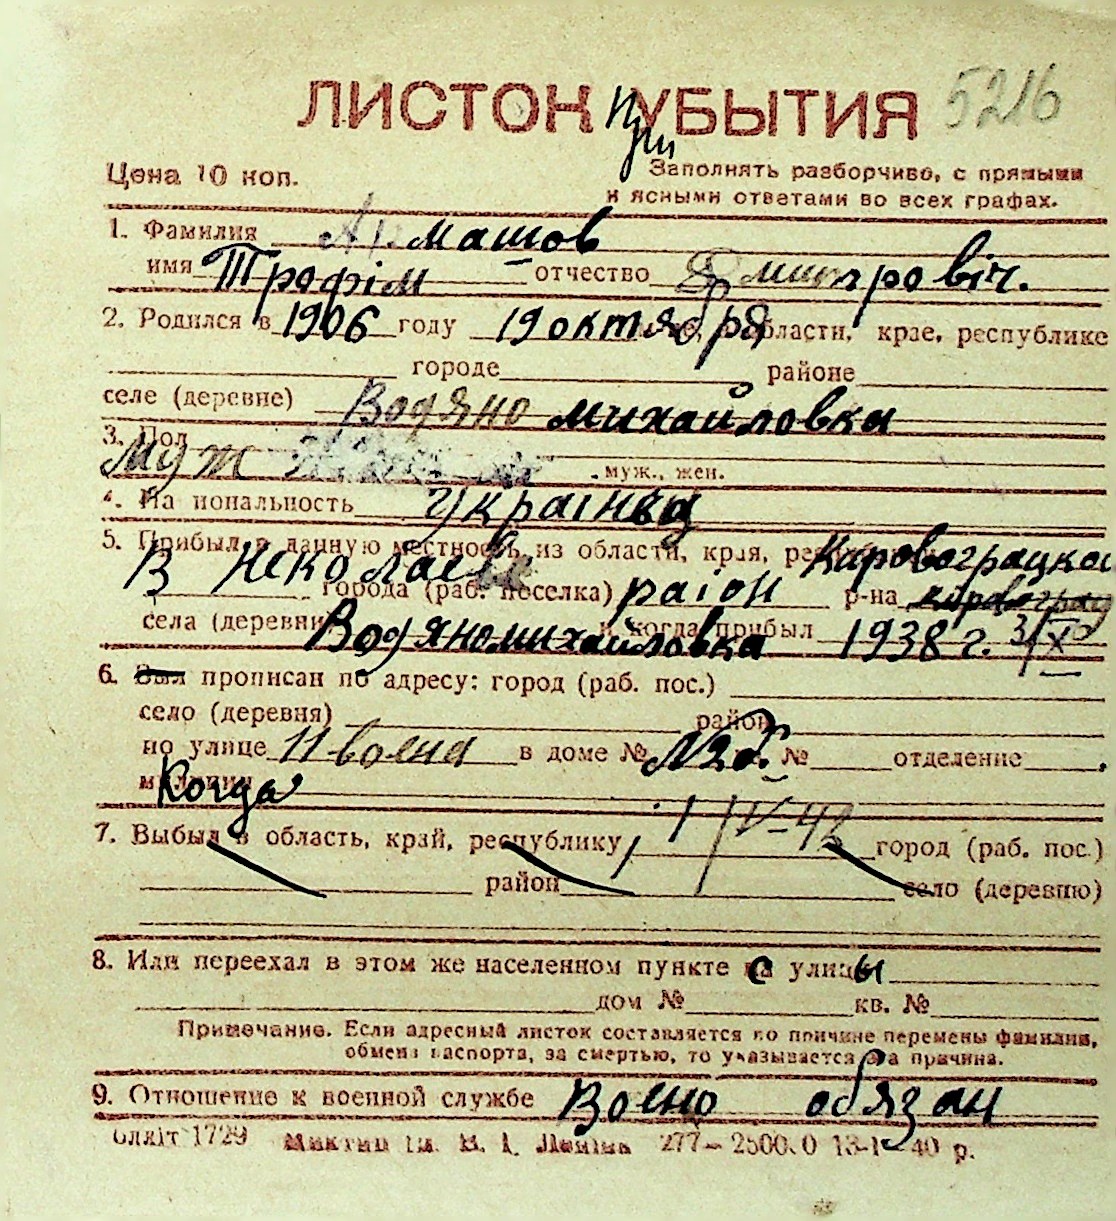 ЛИСТОК При УБЫТИЯ 5216
Цена 10 коп. Заполнять разборчиво, с прямыми
и ясными ответами во всех графах.
1. Фамилия машов
имя Трофім отчество Дмитровіч.
2. Родился в 1906 году 19 октября области, крае, республике
городе районе
селе (деревне) Водяно михайловка
3. Пол
Муж муж., жен.
4. На иональность украінец
5. Прибыл в данную местность из области, края, Кировограцкая
В Неколаеве города (раб. поселка) раіон р-на
села (деревни Водяномихайловка и когда прибыл 1938 г. 3/X
6. Был прописан по адресу: город (раб. пос.)
село (деревня) район
по улице 11 воена в доме № №28. № отделение
милиции Когда
1/IV-42
7. Выбыл в область, край, республику, город (раб. пос.)
район село (деревню)
8. Или переехал в этом же населенном пункте с улицы
дом № кв. №
Примечание. Если адресный листок составляется по причине перемены фамилии,
обмена паспорта, за смертью, то указывается эта причина.
9. Отношение к военной службе Воено обязан
Блліт 1729 ім. В. І. Леніна 277— 40 р.